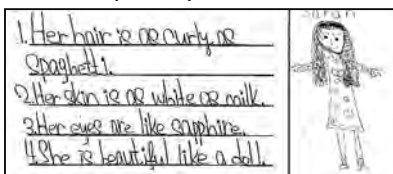 1. Her hair is as curly as
spaghetti.
2. Her skin is as white as milk.
3. Her eyes are like sapphire.
4. She is beautiful like a doll.
Sarah